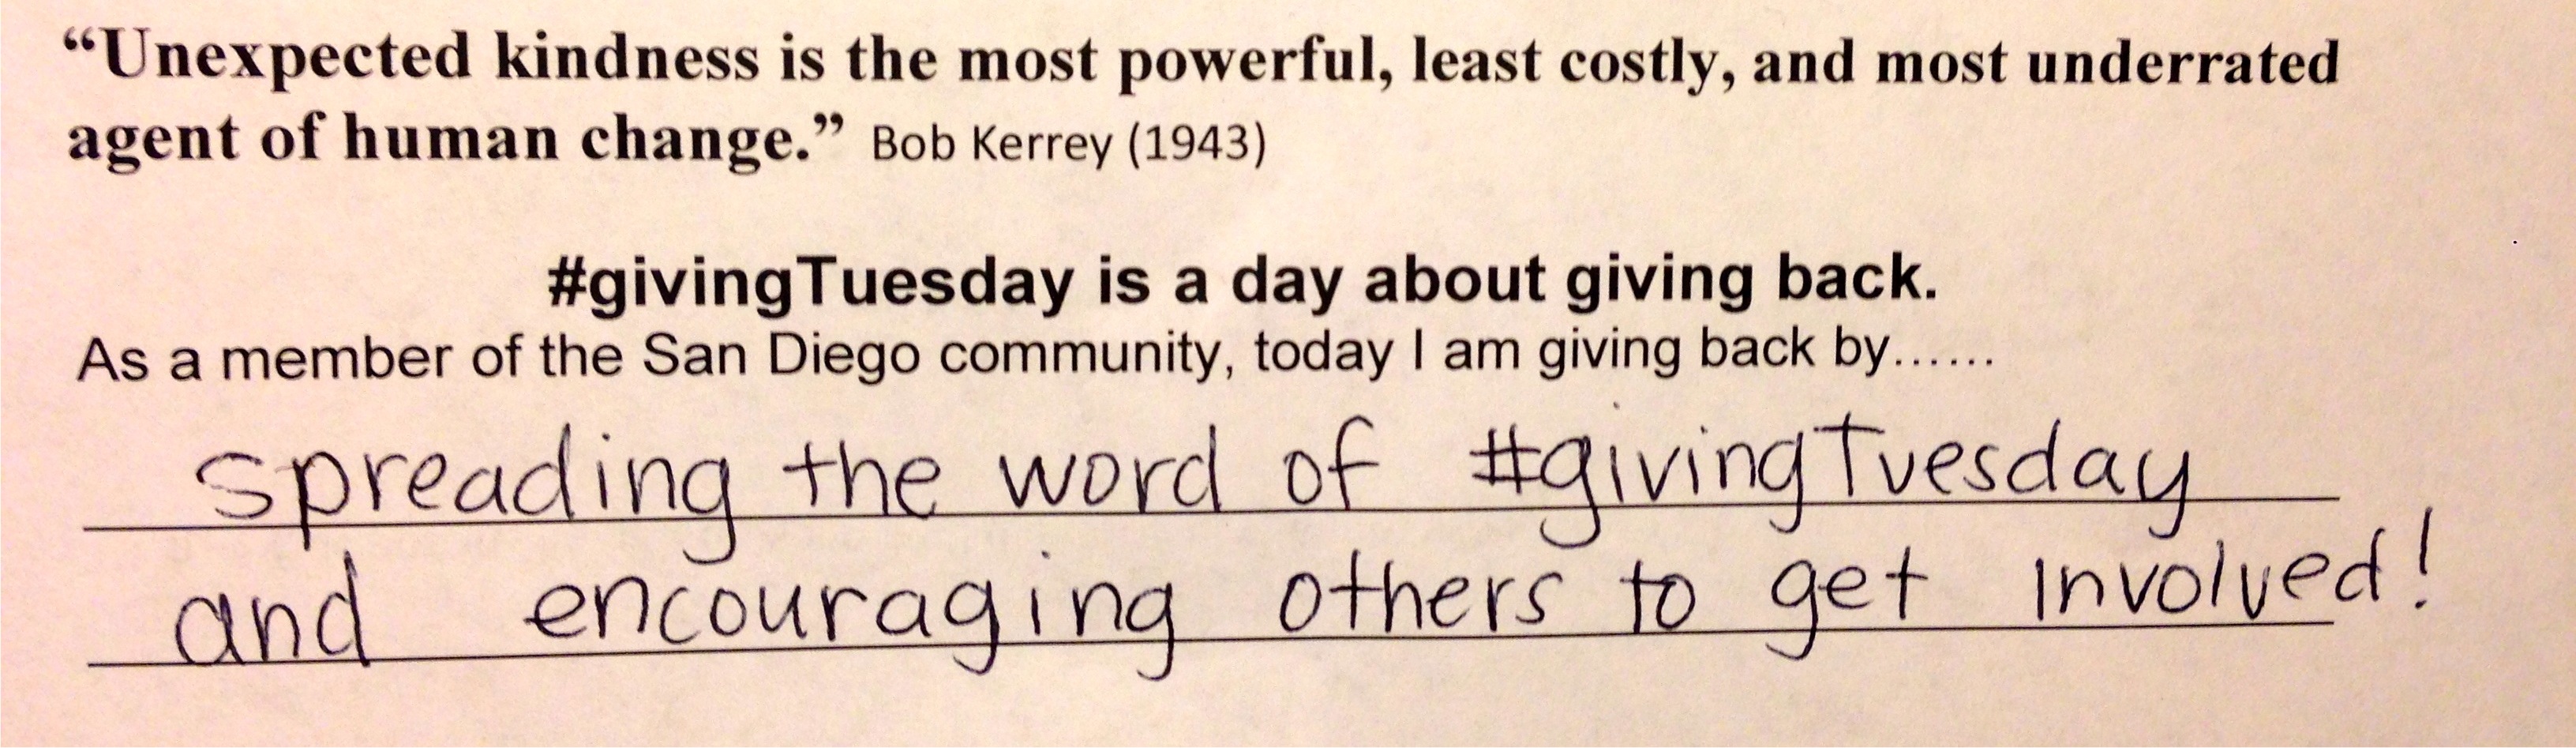 “Unexpected kindness is the most powerful, least costly, and most underrated
agent of human change.” Bob Kerrey (1943)
#givingTuesday is a day about giving back.
As a member of the San Diego community, today I am giving back by......
spreading the word of #givingTuesday
and encouraging others to get involved!